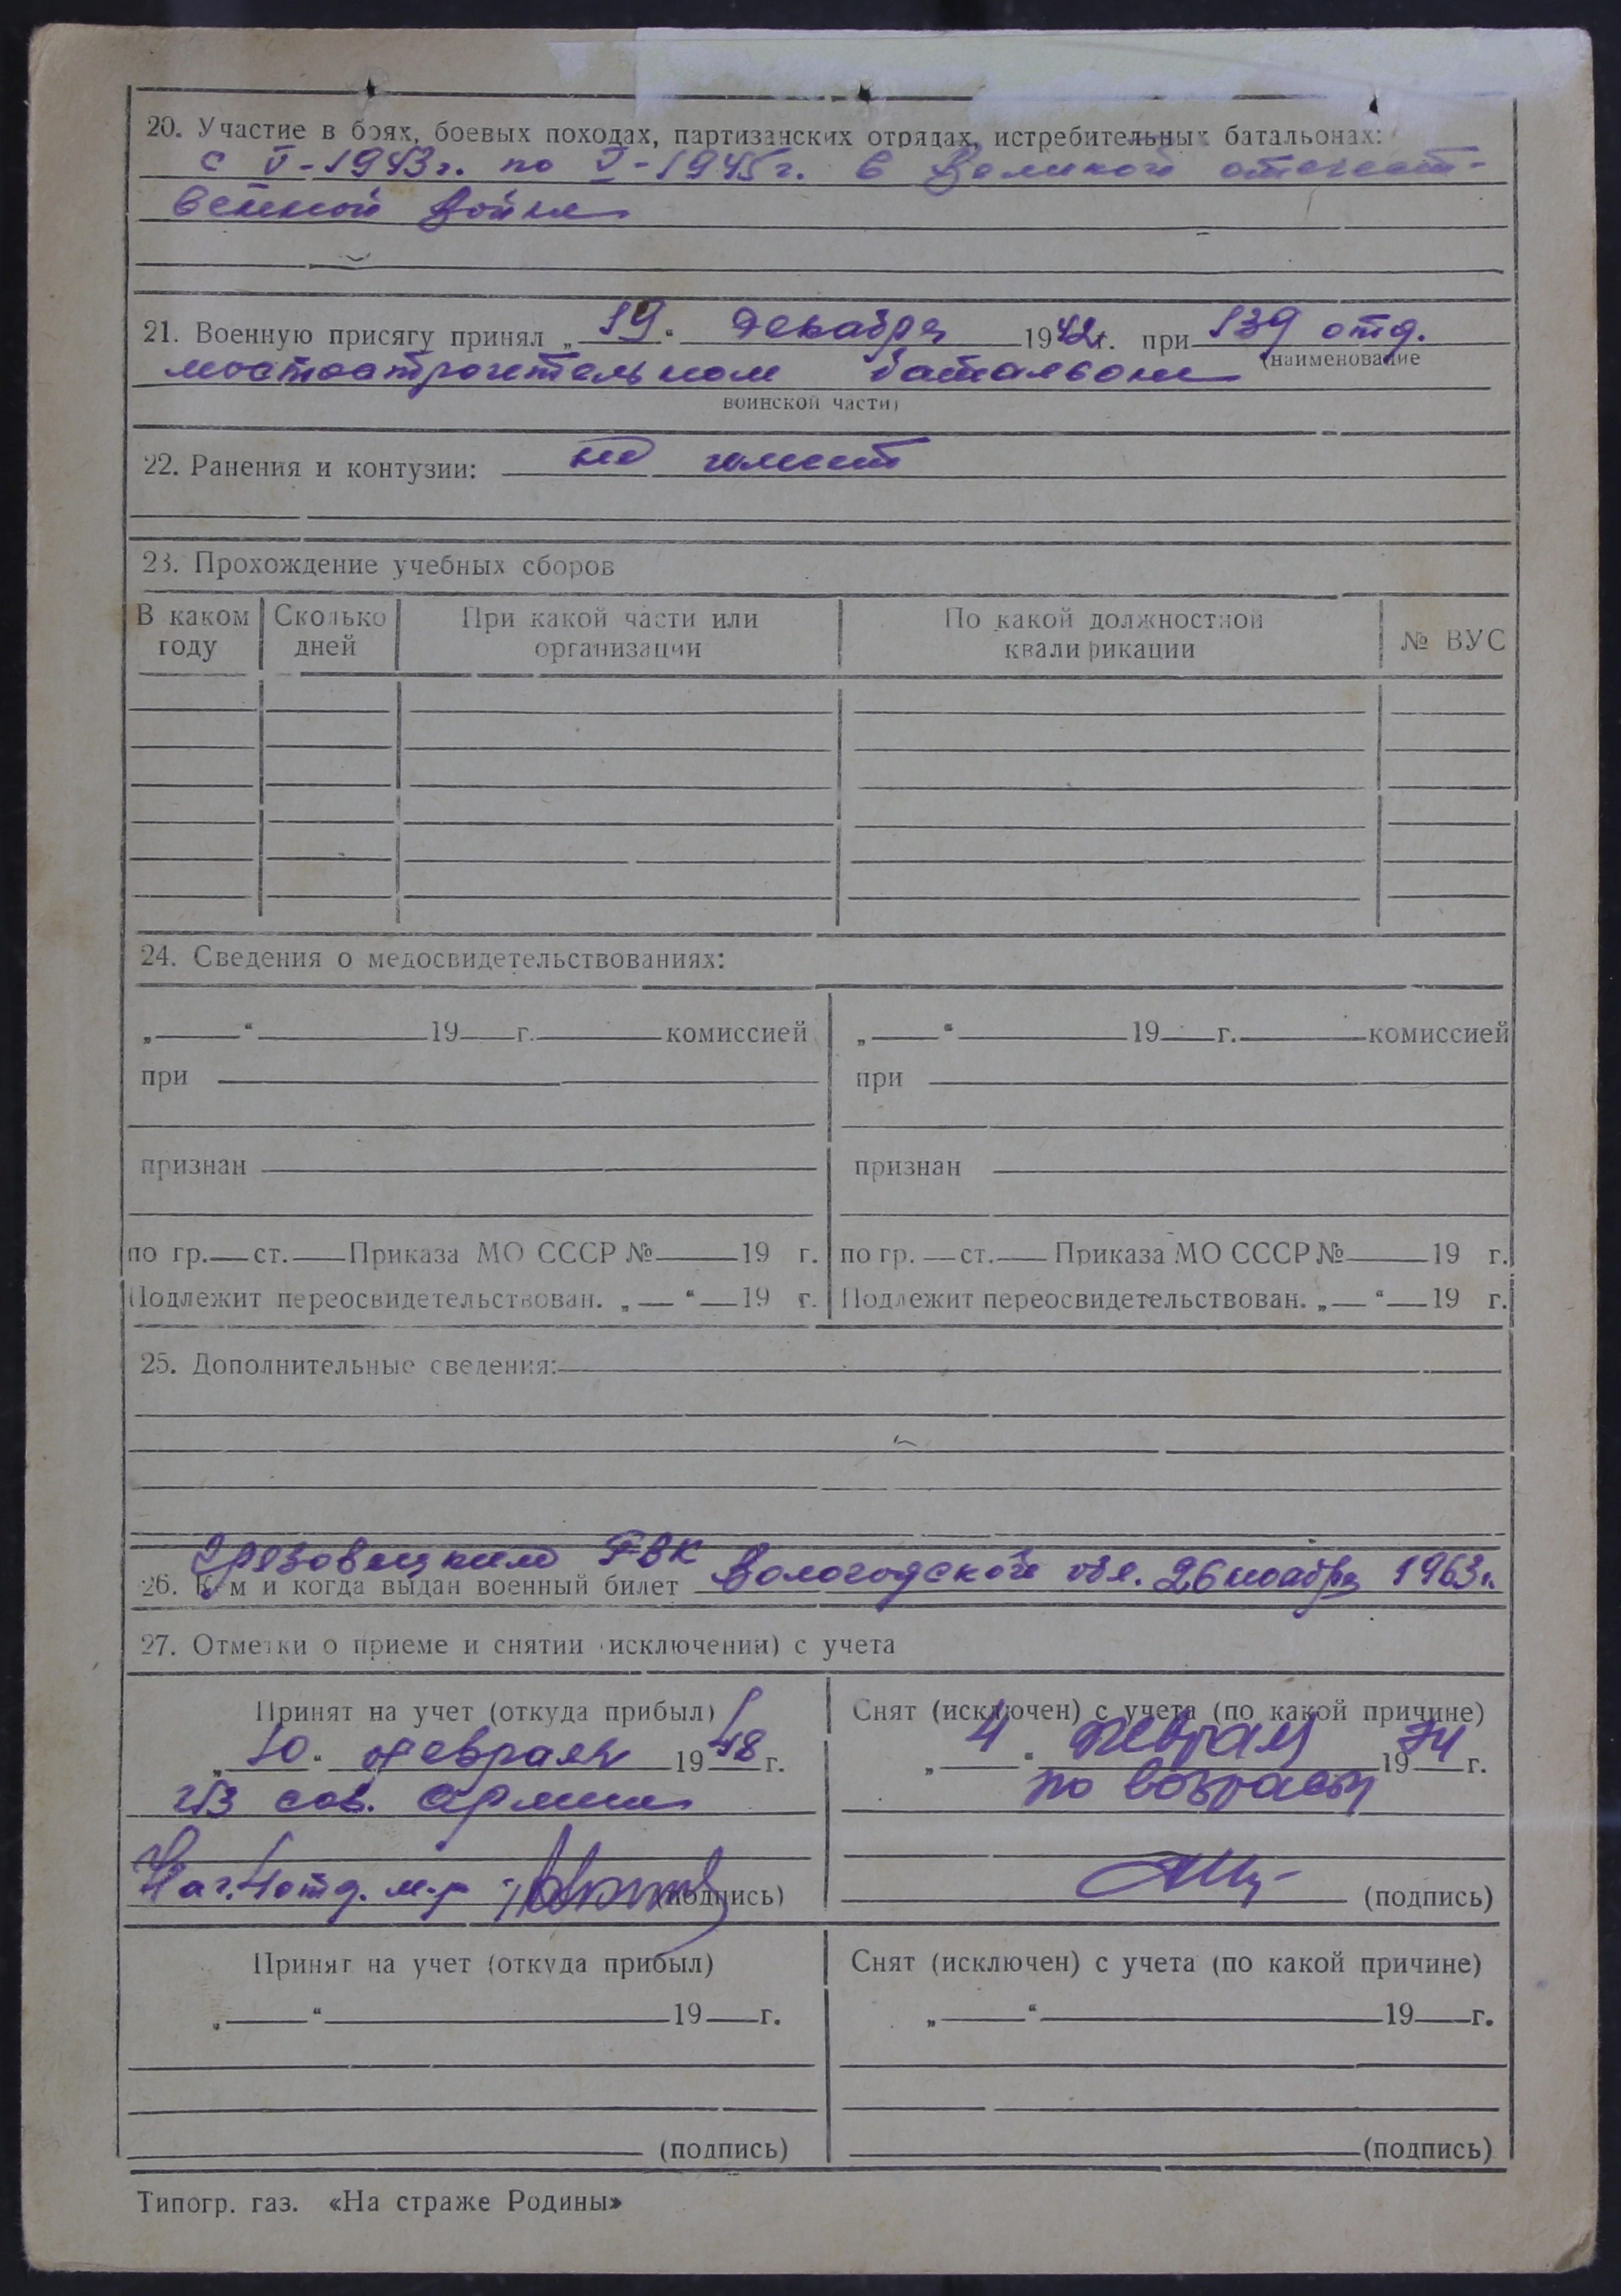 20. Участие в боях, боевых походах, партизанских отрядах, истребительных батальонах:
с V-1943г. по V-1945г. в Великой отечест-
венной войне
21. Военную присягу принял „19“ декабря 1942г. при 139 отд.
(наименование
мостостроительном батальоне
воинской части)
22. Ранения и контузии: не имеет
23. Прохождение учебных сборов
В каком Сколько При какой части или По какой должностной № ВУС
году дней организации квалификации
24. Сведения о медосвидетельствованиях:
„ “ 19 г. комиссией „ “ 19 г. комиссией
при при
признан признан
по гр. ст. Приказа МО СССР № 19 г. по гр. ст. Приказа МО СССР № 19 г.
Подлежит переосвидетельствован. „ “ 19 г. Подлежит переосвидетельствован. „ “ 19 г.
25. Дополнительные сведения:
Грязовецким РВК
26. Кем и когда выдан военный билет Вологодской обл. 26 ноября 1963г.
27. Отметки о приеме и снятии (исключении) с учета
Принят на учет (откуда прибыл) Снят (исключен) с учета (по какой причине)
„10“ февраля 1948 г. „4“ февраля 1974 г.
из сов. армии по возрасту
Нач. 4 отд. м-р (подпись) (подпись)
Принят на учет (откуда прибыл) Снят (исключен) с учета (по какой причине)
„ “ 19 г. „ “ 19 г.
(подпись) (подпись)
Типогр. газ. «На страже Родины»